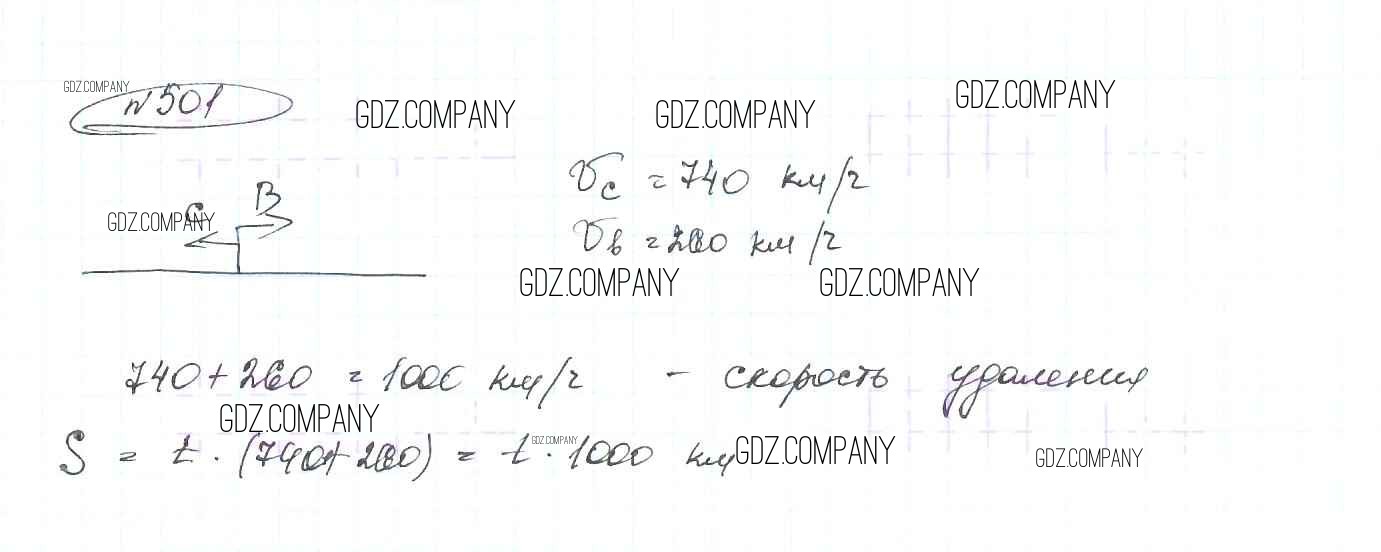 GDZ.COMPANY
№501
GDZ.COMPANY GDZ.COMPANY GDZ.COMPANY
υс = 740 км/ч
GDZ.COMPANY
С В
υв = 260 км/ч
GDZ.COMPANY GDZ.COMPANY
740 + 260 = 1000 км/ч - скорость удаления
GDZ.COMPANY
S = t · (740 + 260) = t · 1000 км
GDZ.COMPANY GDZ.COMPANY GDZ.COMPANY